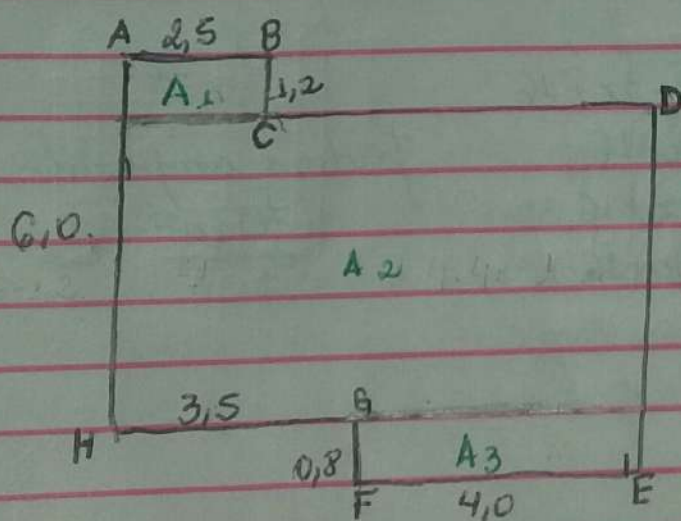 A 2,5 B
A1 1,2
C D
6,0.
A2
3,5 G
H
0,8 A3
F 4,0 E